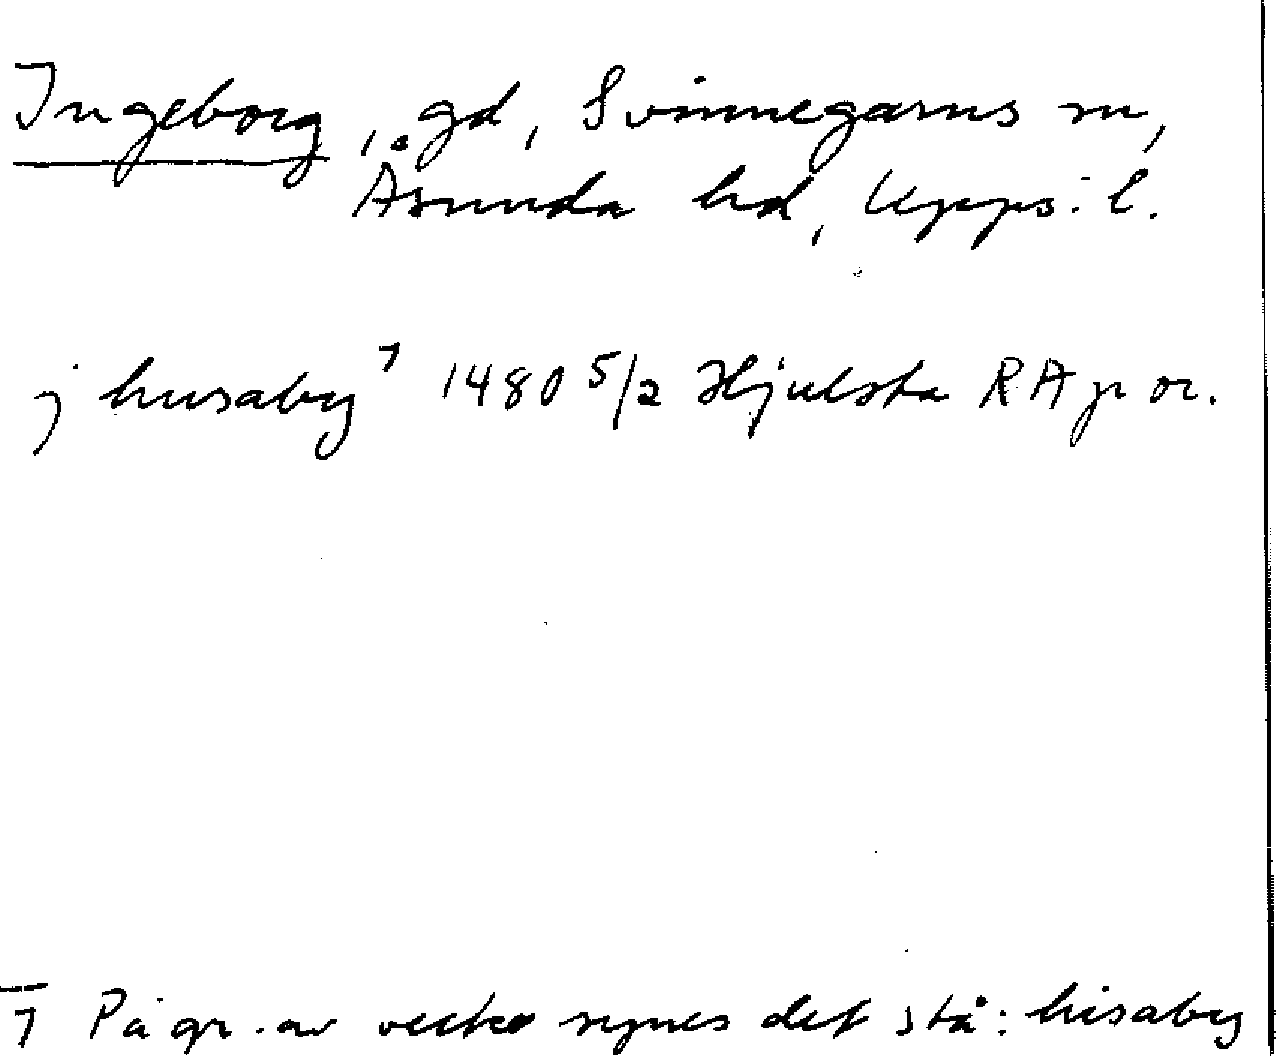 Ingeborg, gd, Svinnegarns sn,
Åsunda hd, Upps. l.
j husaby 1) 1480 5/2 Hjulsta RAp or.
1) På gr. av vecke synes det stå: hisaby